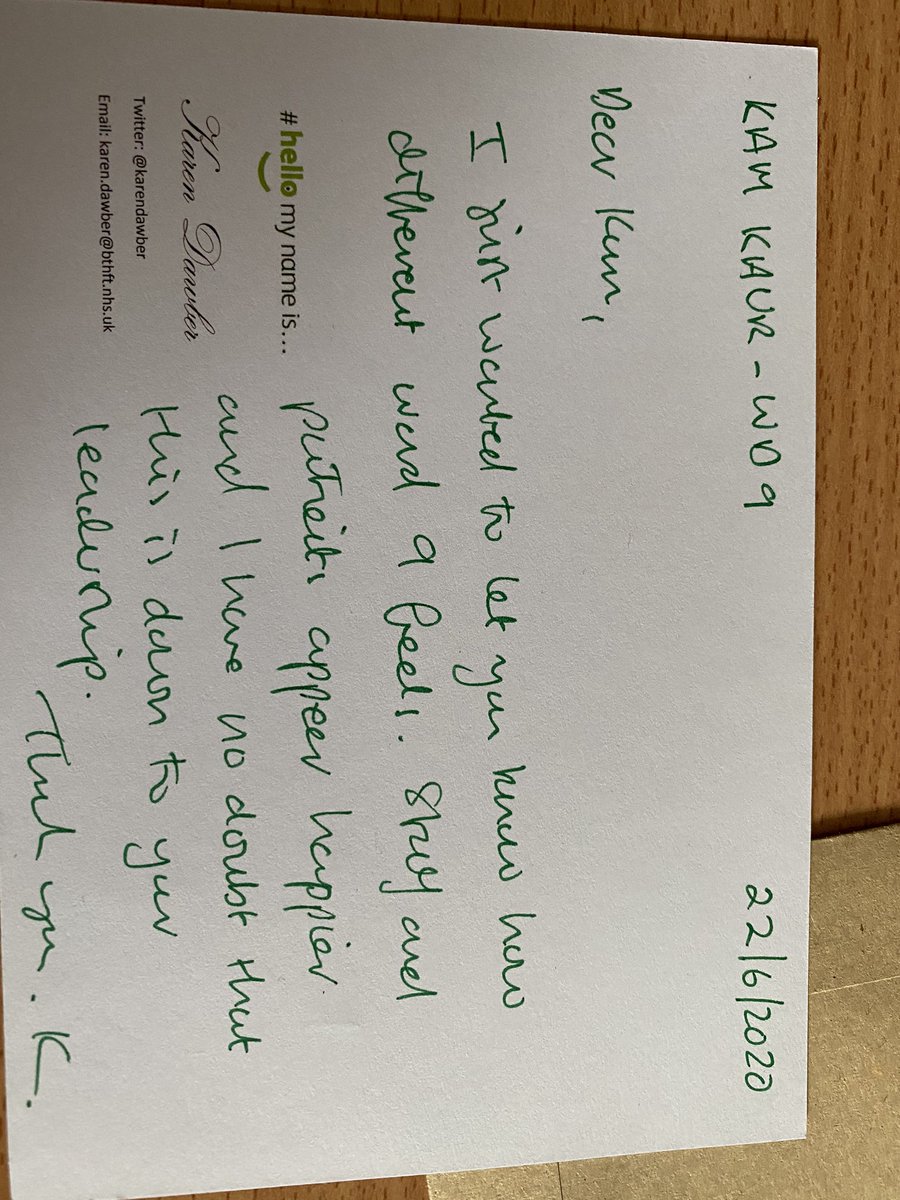 KAM KAUR - WD 9 22/6/2020
Dear Kam,
I just wanted to let you know how
different ward 9 feels. Staff and
patients appear happier
and I have no doubt that
this is down to your
leadership.
Thank you. K.
#hello my name is...
Karen Dawber
Twitter: @karendawber
Email: karen.dawber@bthft.nhs.uk